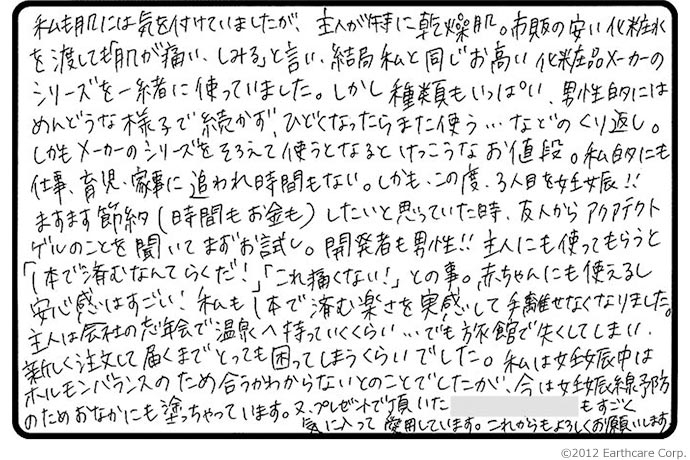 私も肌には気を付けていましたが、主人が特に乾燥肌。市販の安い化粧水
を渡しても「肌が痛い、しみる」と言い、結局私と同じお高い化粧品メーカーの
シリーズを一緒に使っていました。しかし種類もいっぱい、男性的には
めんどうな様子で続かず、ひどくなったらまた使う…などのくり返し。
しかもメーカーのシリーズをそろえて使うとなるとけっこうなお値段。私的にも
仕事、育児、家事に追われ時間もない。しかも、この度、3人目を妊娠!!
ますます節約(時間もお金も)したいと思っていた時、友人からアクアテクト
ゲルのことを聞いてまずお試し。開発者も男性!!主人にも使ってもらうと
「1本で済むなんてらくだ!」「これ痛くない!」との事。赤ちゃんにも使えるし
安心感はすごい!私も1本で済む楽さを実感して手離せなくなりました。
主人は会社の忘年会で温泉へ持っていくくらい…でも旅館で失くしてしまい、
新しく注文して届くまでとっても困ってしまうくらいでした。私は妊娠中は
ホルモンバランスのため合うかわからないとのことでしたが、今は妊娠線予防
のためおなかにも塗っちゃっています。又、プレゼントで頂いた もすごく
気に入って愛用しています。これからもよろしくお願いします。
©2012 Earthcare Corp.